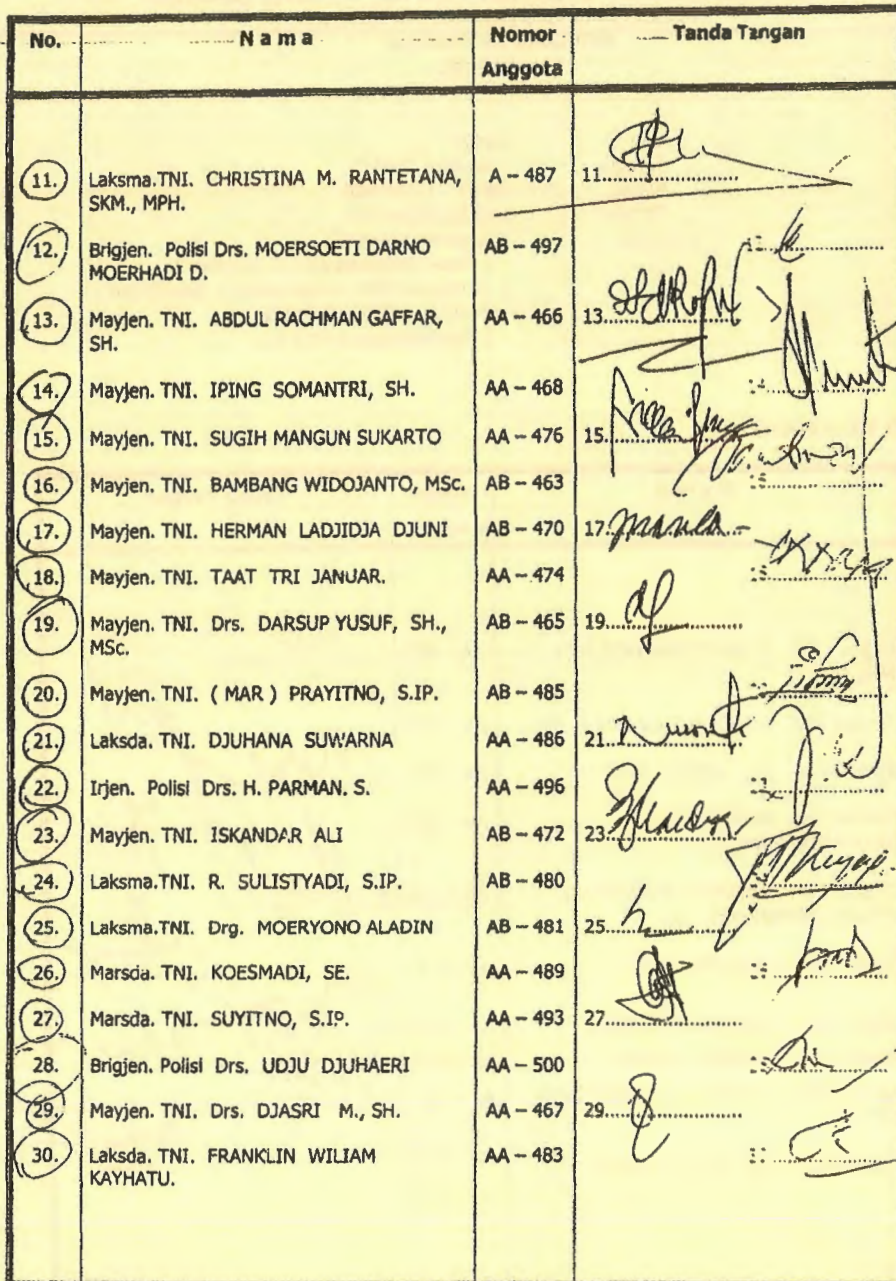 No. N a m a Nomor Anggota Tanda Tangan
11. Laksma.TNI. CHRISTINA M. RANTETANA, A – 487 11.
SKM., MPH.
12. Brigjen. Polisi Drs. MOERSOETI DARNO AB – 497
MOERHADI D.
13. Mayjen. TNI. ABDUL RACHMAN GAFFAR, AA – 466 13.
SH.
14. Mayjen. TNI. IPING SOMANTRI, SH. AA – 468 14.
15. Mayjen. TNI. SUGIH MANGUN SUKARTO AA – 476 15.
16. Mayjen. TNI. BAMBANG WIDOJANTO, MSc. AB – 463
17. Mayjen. TNI. HERMAN LADJIDJA DJUNI AB – 470 17.
18. Mayjen. TNI. TAAT TRI JANUAR. AA – 474
19. Mayjen. TNI. Drs. DARSUP YUSUF, SH., AB – 465 19.
MSc.
20. Mayjen. TNI. ( MAR ) PRAYITNO, S.IP. AB – 485
21. Laksda. TNI. DJUHANA SUWARNA AA – 486 21.
22. Irjen. Polisi Drs. H. PARMAN. S. AA – 496
23. Mayjen. TNI. ISKANDAR ALI AB – 472 23.
24. Laksma.TNI. R. SULISTYADI, S.IP. AB – 480
25. Laksma.TNI. Drg. MOERYONO ALADIN AB – 481 25.
26. Marsda. TNI. KOESMADI, SE. AA – 489
27. Marsda. TNI. SUYITNO, S.IP. AA – 493 27.
28. Brigjen. Polisi Drs. UDJU DJUHAERI AA – 500
29. Mayjen. TNI. Drs. DJASRI M., SH. AA – 467 29.
30. Laksda. TNI. FRANKLIN WILIAM AA – 483
KAYHATU.